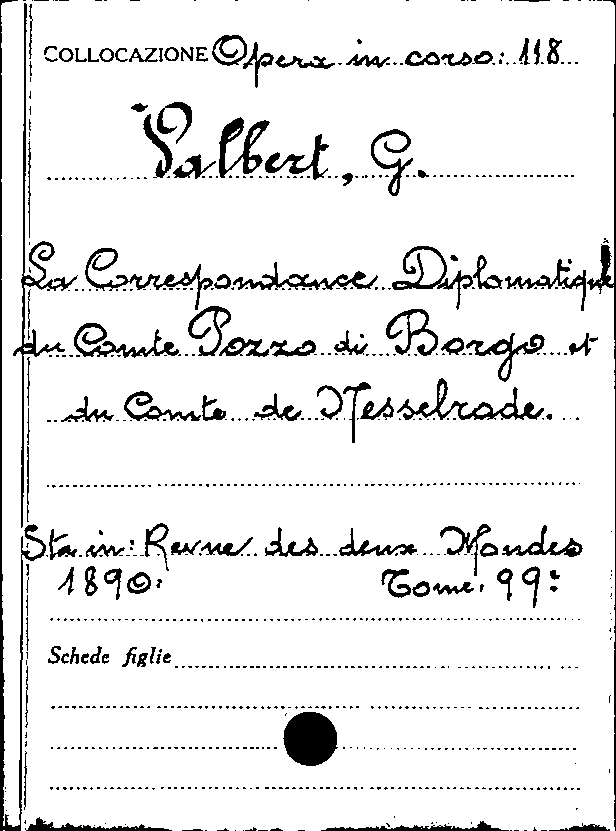 COLLOCAZIONE Opera in corso: 118
Valbert, G.
La Correspondance Diplomatique
du Comte Pozzo di Borgo et
du Comte de Nesselrode.
Sta in: Revue des deux Mondes
1890. Tome. 99:
Schede figlie